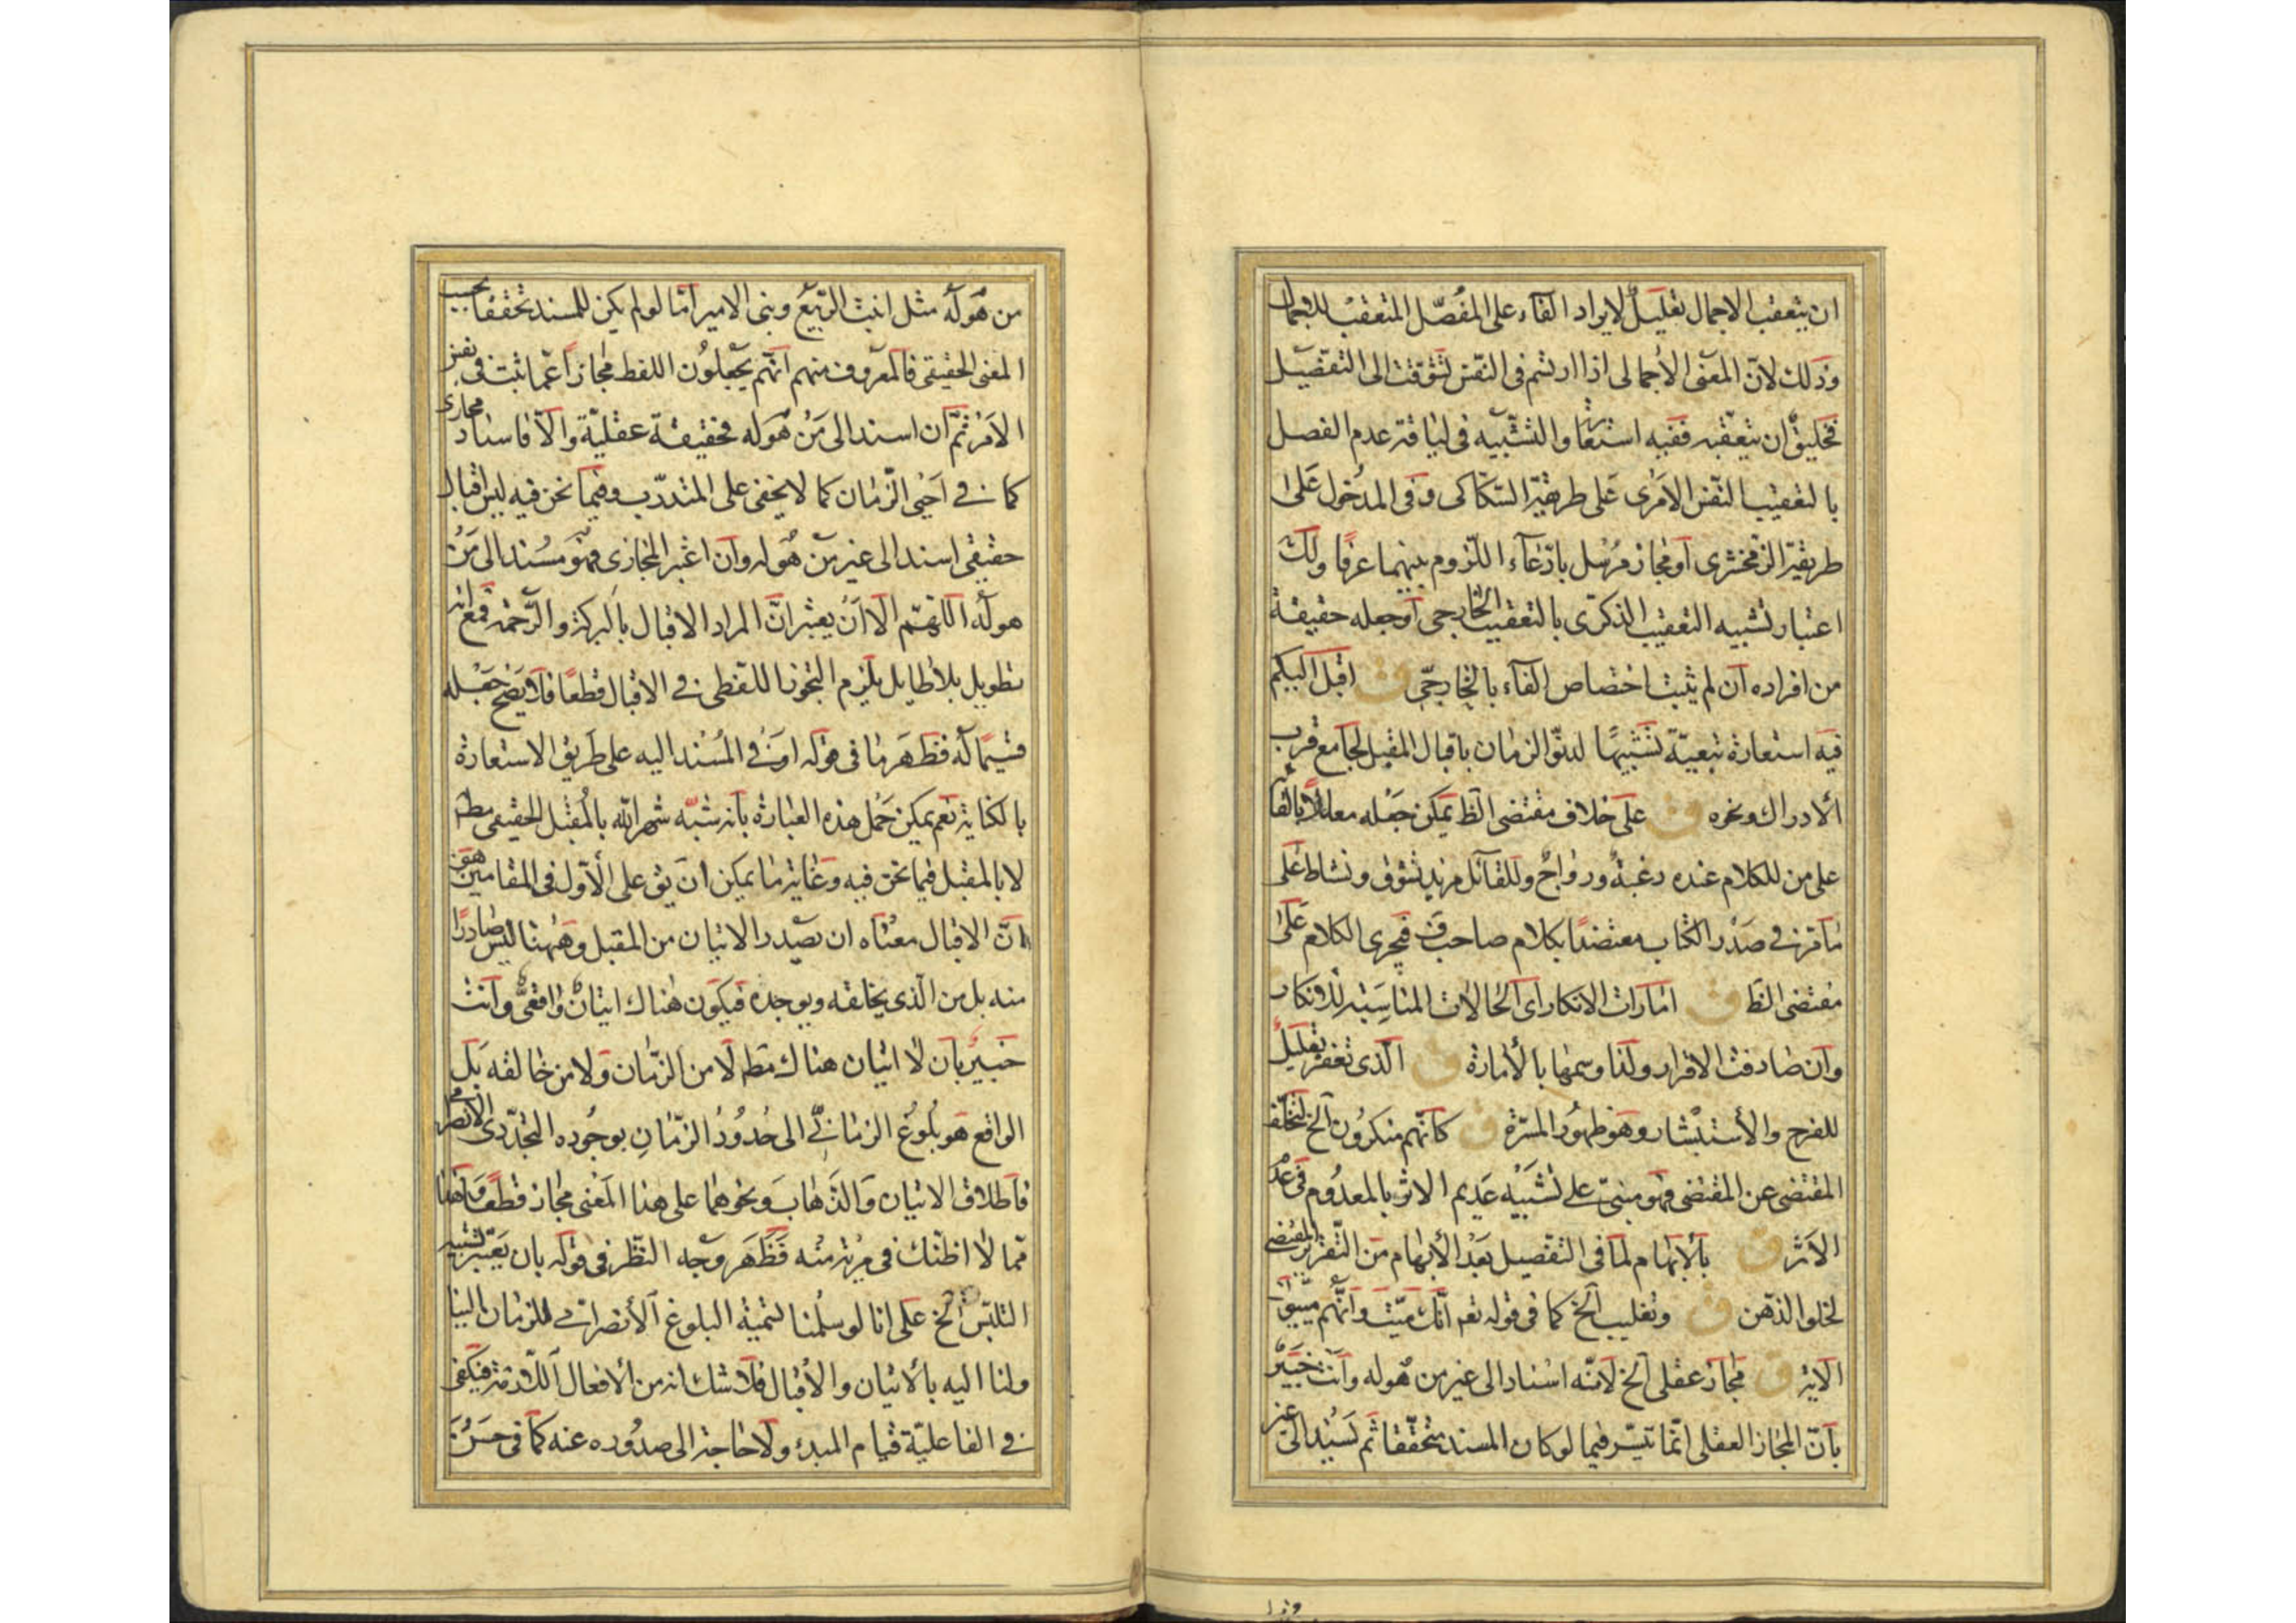 ان يتعقب الاجمال تعليل لايراد الفاء على المفصّل المتعقب للاجمال
وذلك لانّ المعنى الاجمالى اذا ارتسم فى النفس تشوقت الى التفصيل
فخليق ان يتعقبه ففيه استعارة والتشبيه فى لياقة عدم الفصل
بالتعقيب النفس الامرى على طريقة السكاكى وفى المدخول على
طريقة الزمخشرى او مجاز مرسل بادّعاء اللزوم بينهما عرفا ولك
اعتبار تشبيه التعقيب الذكرى بالتعقيب الخارجى او جعله حقيقة
من افراده ان لم يثبت اختصاص الفاء بالخارجى ق اقبل اليكم
فيه استعارة تبعية تشبيها لدنوّ الزمان باقبال المقبل لجامع قرب
الادراك ونحوه ق على خلاف مقتضى الظ يمكن جعله معللا بالقا
على من للكلام عنده رغبة ورواج وللقائل مزيد تشوق ونشاط على
ما قرر فى صدر الكتاب معتضدا بكلام صاحب ف فيجرى الكلام على
مقتضى الظ ق امارات الانكار اى الحالات المناسبة للانكار
وان صادفت الاقرار ولذا وسمها بالأمارة ق الذى تغفر تعليل
للفرح والأستبشار وهو ظهور المسرة ق كانهم منكرون الخ لتخلف
المقتضى عن المقتضى فهو مبنىّ على تشبيه عديم الاثر بالمعدوم فى عدم
الاثر ق بالابهام لما فى التفصيل بعد الأبهام من التقرير المقتضى
لخلو الذهن ق وتغليب الخ كما فى قوله تعه انك ميت وانهم ميتون
الاية ق مجاز عقلى الخ لانه اسناد الى غير من هو له وانت خبير
بان المجاز العقلى انما تيسّر فيما لو كان المسند متحققا ثم يسند الى غير
من هو له مثل انبت الربيع وبنى الامير امّا لو لم يكن للمسند تحقق بحسب
المعنى الحقيقى فالمعروف منهم انهم يجعلون اللفظ مجازا عمّا ثبت فى نفس
الامر ثم ان اسند الى من هو له فحقيقة عقلية والّا فاسناد مجازى
كما فى احيى الزمان كما لا يخفى على المتدرب وفيما نحن فيه ليس اقبال
حقيقى اسند الى غير من هو له وان اعتبر المجازى فهو مسند الى من
هو له اللهم الا ان يعتبر انّ المراد الاقبال بالبركة والرحمة فمع انه
تطويل بلا طايل يلزم التجوز اللفظى فى الاقبال قطعا فلا يصح جعله
قسيما له فظهر ما فى قوله او فى المسند اليه على طريق الاستعارة
بالكناية نعم يمكن حمل هذه العبارة بانه شبه شهر الله بالمقبل الحقيقى مطه
لا بالمقبل فيما نحن فيه وغاية ما يمكن ان يق على الأول فى المقامين هو
انّ الاقبال معناه ان يصدر الاتيان من المقبل وههنا ليس صادرا
منه بل من الّذى يخالقه ويوجده فيكون هناك اتيان واقعى وانت
خبير بان لا اتيان هناك مطه لا من الزمان ولا من خالقه بل
الواقع هو بلوغ الزمانى الى حدود الزمان بوجوده التجددى الانصرامى
فاطلاق الاتيان والذهاب ونحوهما على هذا المعنى مجاز قطعا وهذا
مما لا اظنك فى مرية منه فظهر وجه النظر فى قوله بان يعتبر تشبيه
التلبس الخ على انا لو سلمنا تسمية البلوغ الأنصرامى للزمان الينا
ولنا اليه بالاتيان والاقبال فلا شك انه من الأفعال اللازمة فيكفى
فى الفاعلية قيام المبدء ولا حاجة الى صدوره عنه كما فى حسن